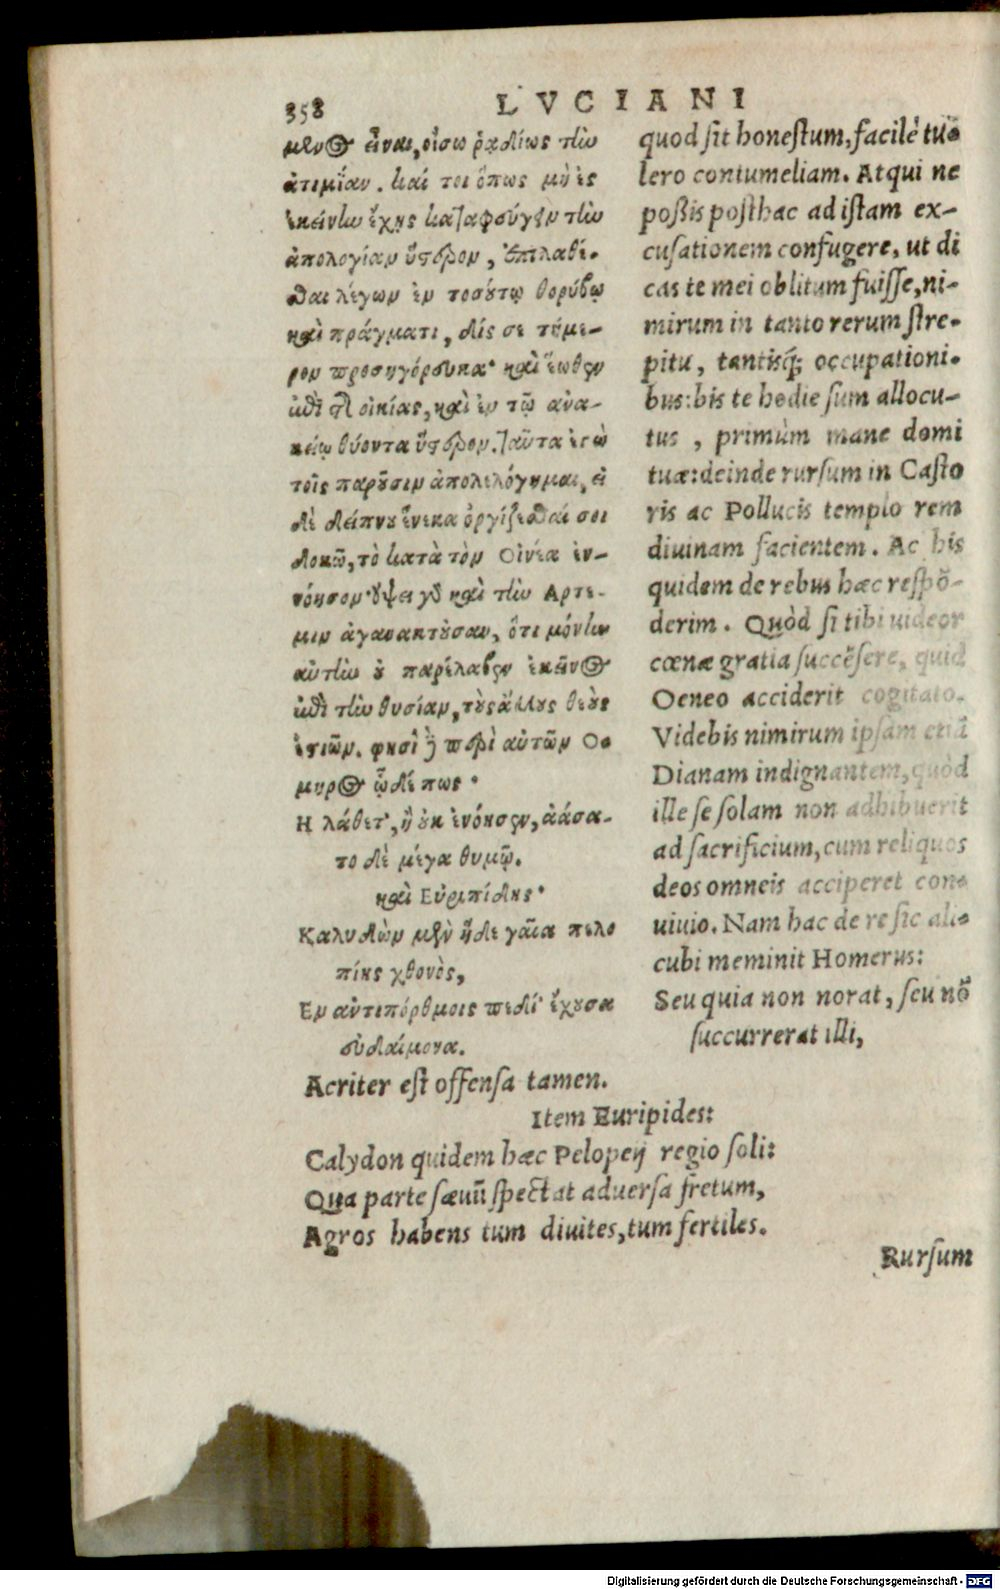 358 LVCIANI
μενος εἶναι, οἴσω ῥᾳδίως τὴν
ἀτιμίαν. καί τοι ὅπως μὴ ἐς
ἐκείνην ἔχῃς καταφεύγειν τὴν
ἀπολογίαν ὕστερον, ἐπιλαθέ-
σθαι λέγων ἐν τοσούτῳ θορύβῳ
καὶ πράγματι, δίς σε τήμε-
ρον προσηγόρευκα· καὶ ἕωθεν
ἐπὶ τῆς οἰκίας, καὶ ἐν τῷ ἀνα-
κείῳ θύοντα ὕστερον. ταῦτα ἐγὼ
τοῖς παροῦσιν ἀπολελόγημαι, εἰ
δὲ δείπνου ἕνεκα ὀργίζεσθαί σοι
δοκῶ, τὸ κατὰ τὸν Οἰνέα ἐν-
νόησον· ὄψει γὰρ καὶ τὴν Αρτε-
μιν ἀγανακτοῦσαν, ὅτι μόνην
αὐτὴν οὐ παρέλαβεν ἐκεῖνος
ἐπὶ τὴν θυσίαν, τοὺς ἄλλους θεοὺς
ἑστιῶν. φησὶ δὲ περὶ αὐτῶν Ο-
μηρος ὧδέ πως·
Η λάθετ', ἢ οὐκ ἐνόησεν, ἀάσα-
το δὲ μέγα θυμῷ.
καὶ Εὐριπίδης·
Καλυδὼν μὲν ἥδε γαῖα πελο
πίης χθονὸς,
Εν ἀντιπόρθμοις πεδί' ἔχουσα
εὐδαίμονα.
quod sit honestum, facilè tu-
lero contumeliam. Atqui ne
possis posthac ad istam ex-
cusationem confugere, ut di
cas te mei oblitum fuisse, ni-
mirum in tanto rerum stre-
pitu, tantisq; occupationi-
bus: bis te hodie sum allocu-
tus, primùm mane domi
tuæ: deinde rursum in Casto
ris ac Pollucis templo rem
diuinam facientem. Ac his
quidem de rebus hæc respõ-
derim. Quòd si tibi uideor
cœnæ gratia succẽsere, quid
Oeneo acciderit cogitato.
Videbis nimirum ipsam etiã
Dianam indignantem, quòd
ille se solam non adhibuerit
ad sacrificium, cum reliquos
deos omneis acciperet con-
uiuio. Nam hac de re sic ali-
cubi meminit Homerus:
Seu quia non norat, seu nõ
succurrerat illi,
Acriter est offensa tamen.
Item Euripides:
Calydon quidem hæc Pelopeij regio soli:
Qua parte sæuũ spectat aduersa fretum,
Agros habens tum diuites, tum fertiles.
Rursum
Digitalisierung gefördert durch die Deutsche Forschungsgemeinschaft - DFG